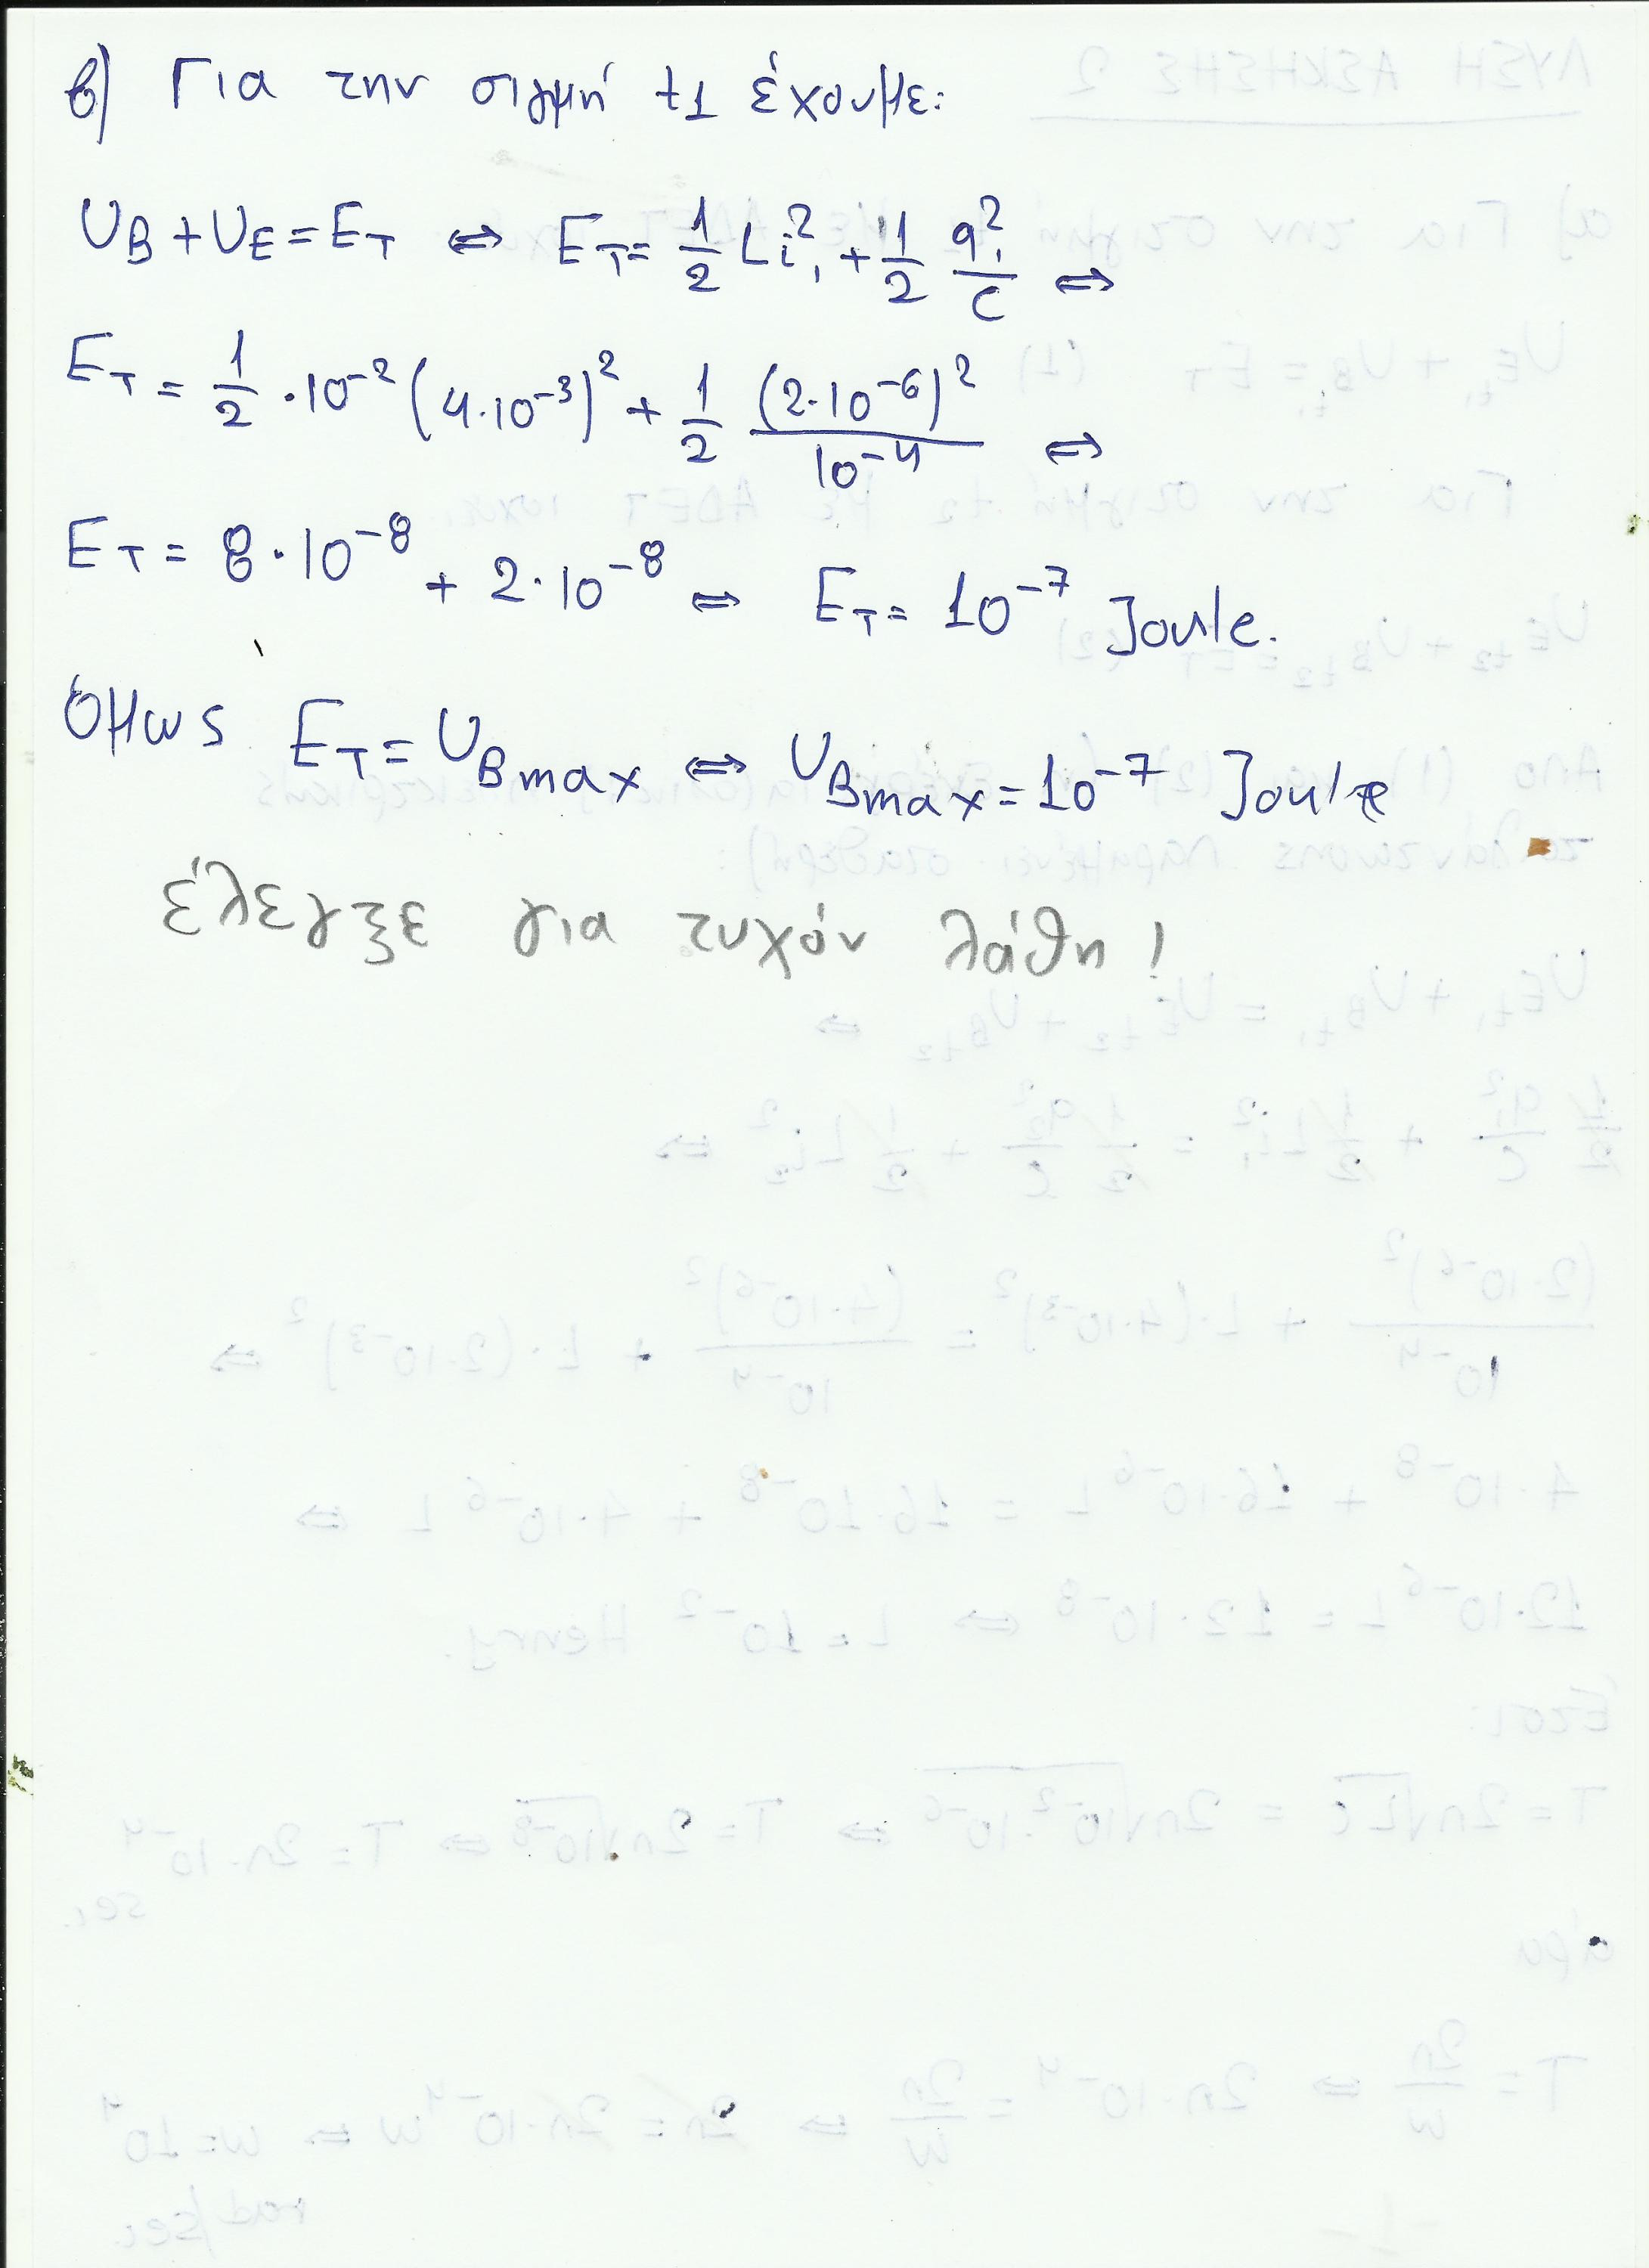 β) Για την στιγμή t1 έχουμε:
UB + UE = ET ⇔ ET = 1/2 Li₁² + 1/2 q₁²/C ⇔
ET = 1/2 · 10⁻² (4·10⁻³)² + 1/2 (2·10⁻⁶)²/10⁻⁴ ⇔
ET = 8·10⁻⁸ + 2·10⁻⁸ ⇔ ET = 10⁻⁷ Joule.
Όμως ET = UBmax ⇔ UBmax = 10⁻⁷ Joule
έλεγξε για τυχόν λάθη!